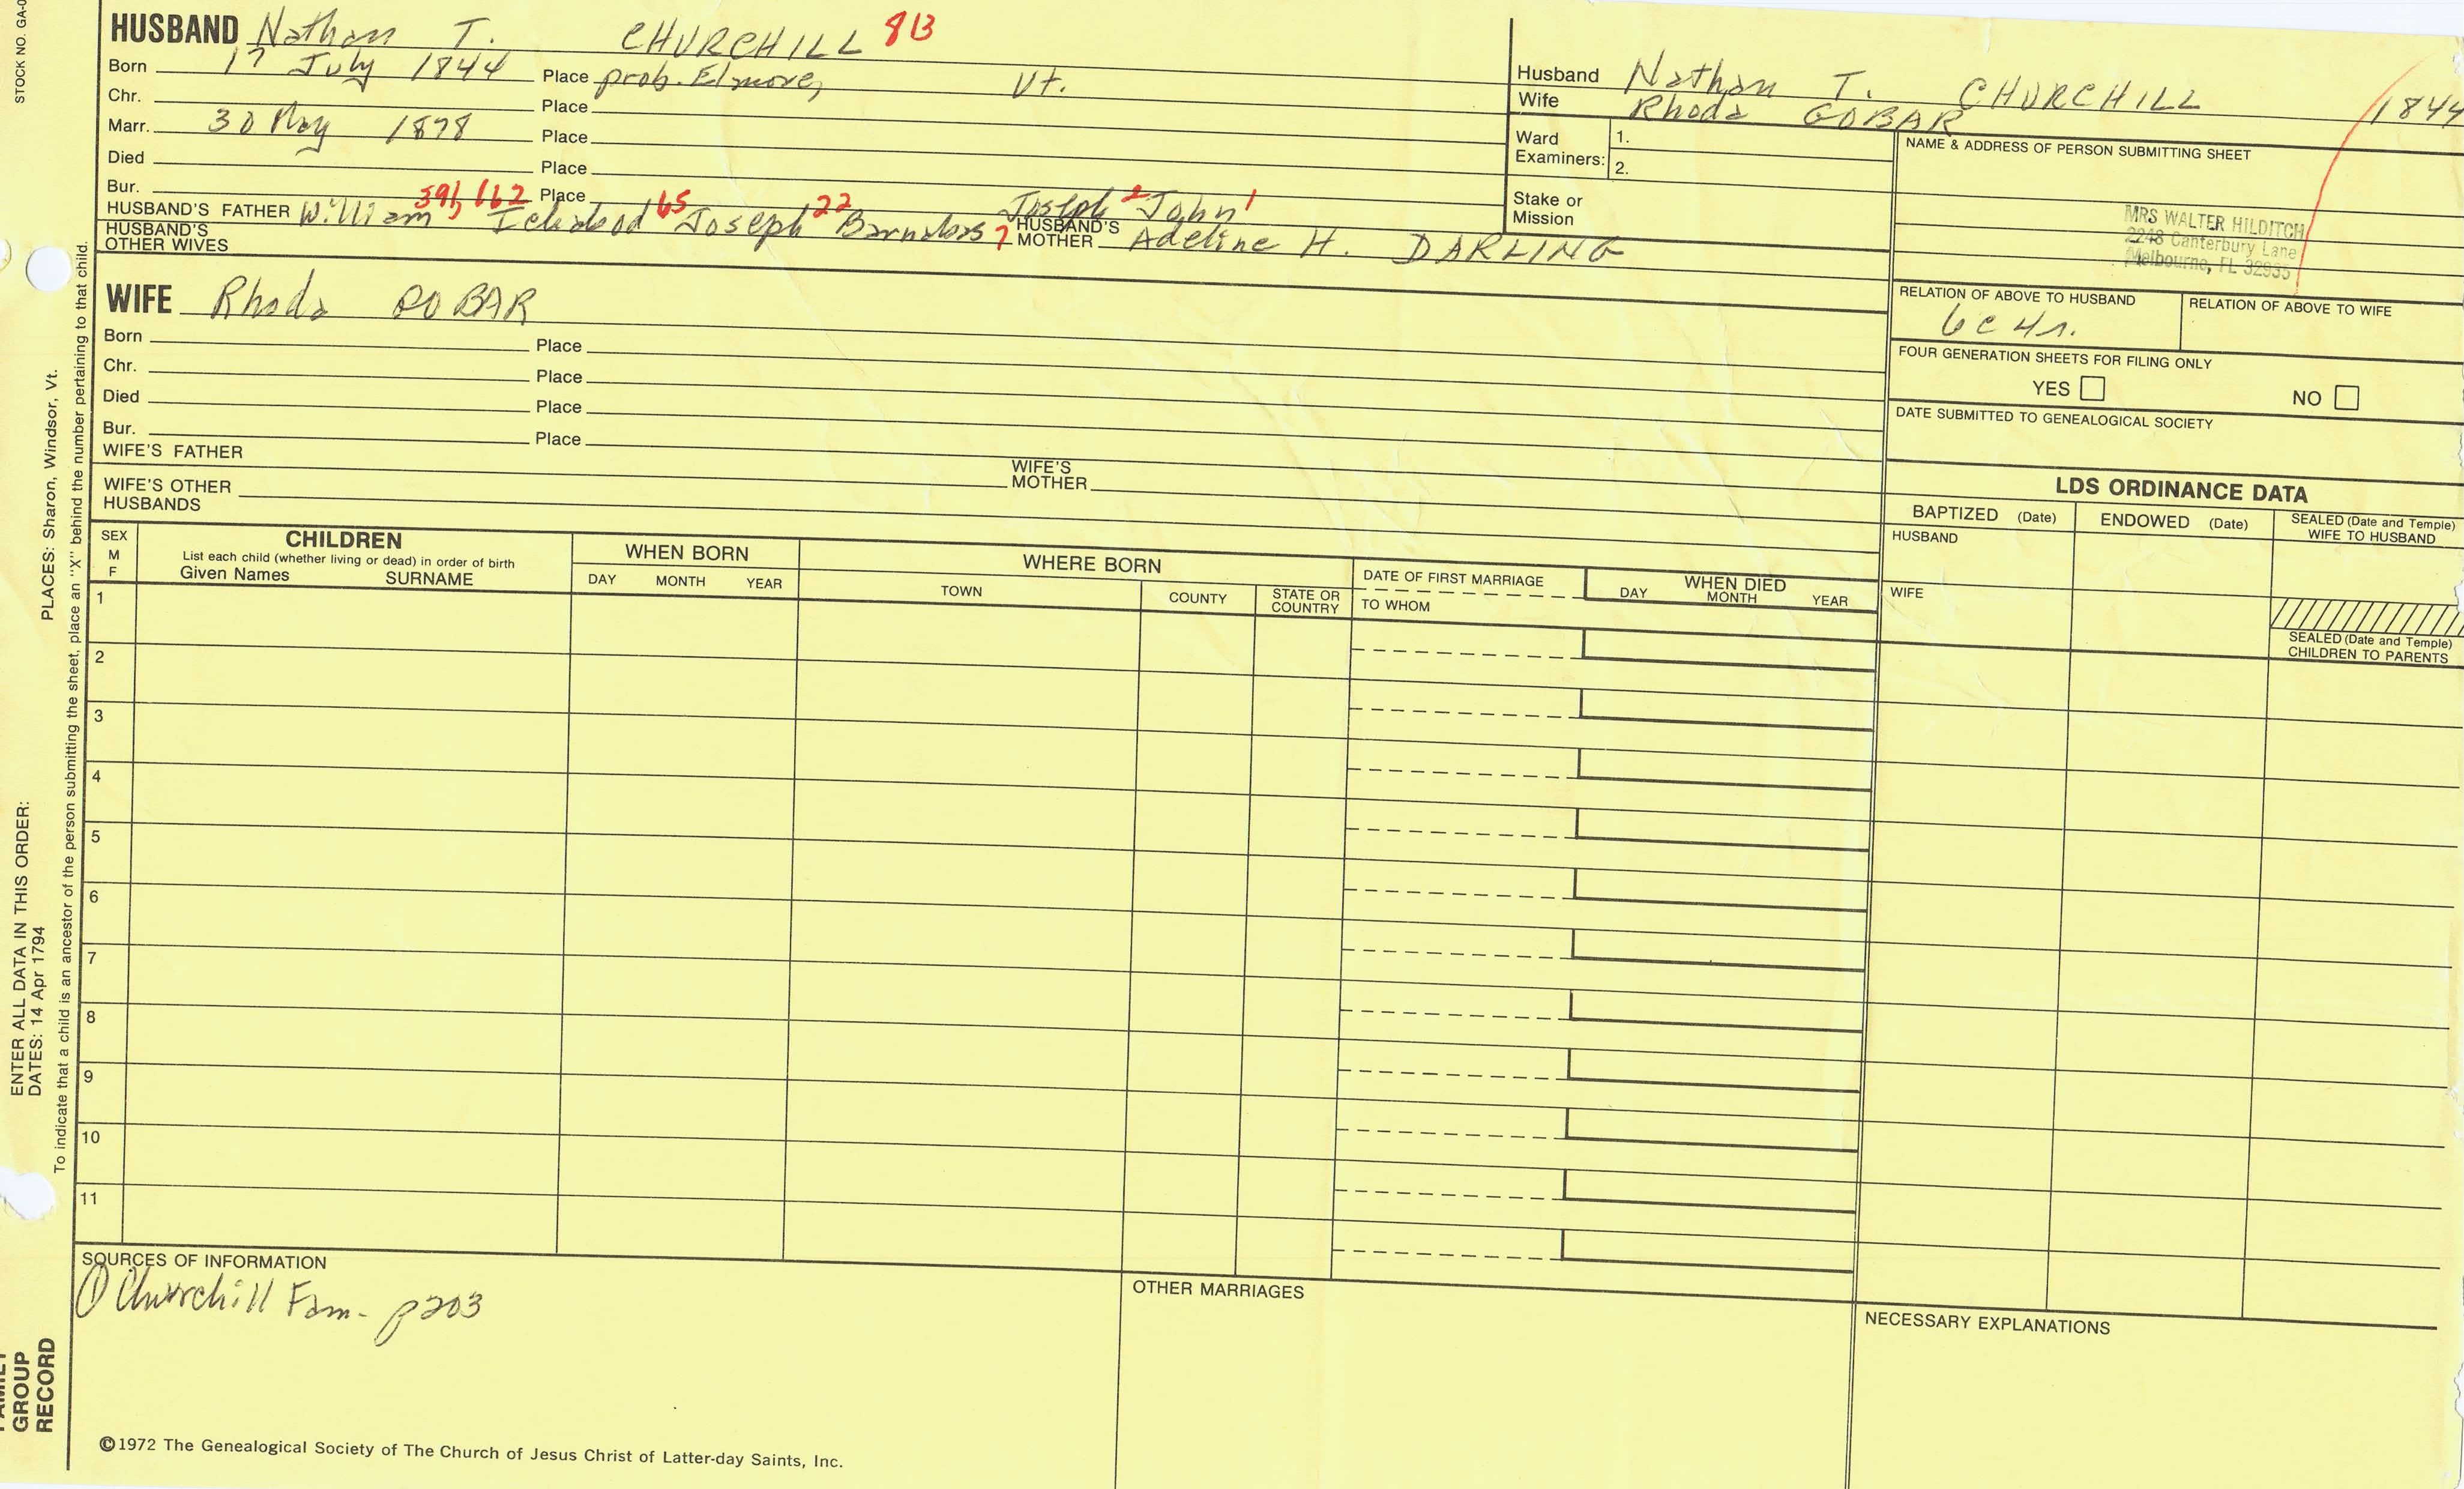 STOCK NO. GA-0
HUSBAND Nathan T. CHURCHILL 813
Born 17 July 1844 Place prob. Elmore, Vt.
Chr. Place
Marr. 30 May 1878 Place
Died Place
Bur. Place
HUSBAND'S FATHER William 391, 162 Ichabod 65 Joseph 22 Barnabas 7 Joseph 2 John 1
HUSBAND'S MOTHER Adeline H. DARLING
HUSBAND'S OTHER WIVES
WIFE Rhoda
Born Place
Chr. Place
Died Place
Bur. Place
WIFE'S FATHER
WIFE'S MOTHER
WIFE'S OTHER HUSBANDS
Husband Nathan T. CHURCHILL 1844
Wife Rhoda GOBAR
Ward Examiners: 1.
2.
Stake or Mission
NAME & ADDRESS OF PERSON SUBMITTING SHEET
MRS WALTER HILDITCH
2248 Canterbury Lane
Melbourne, FL 32935
RELATION OF ABOVE TO HUSBAND
6c 4r.
RELATION OF ABOVE TO WIFE
FOUR GENERATION SHEETS FOR FILING ONLY
YES NO
DATE SUBMITTED TO GENEALOGICAL SOCIETY
LDS ORDINANCE DATA
BAPTIZED (Date) ENDOWED (Date) SEALED (Date and Temple) WIFE TO HUSBAND
HUSBAND
WIFE
SEALED (Date and Temple) CHILDREN TO PARENTS
SEX M F
CHILDREN
List each child (whether living or dead) in order of birth
Given Names SURNAME
WHEN BORN
DAY MONTH YEAR
WHERE BORN
TOWN COUNTY STATE OR COUNTRY
DATE OF FIRST MARRIAGE
TO WHOM
WHEN DIED
DAY MONTH YEAR
1
2
3
4
5
6
7
8
9
10
11
SOURCES OF INFORMATION
① Churchill Fam- p203
OTHER MARRIAGES
NECESSARY EXPLANATIONS
©1972 The Genealogical Society of The Church of Jesus Christ of Latter-day Saints, Inc.
GROUP
RECORD
ENTER ALL DATA IN THIS ORDER:
DATES: 14 Apr 1794
PLACES: Sharon, Windsor, Vt.
To indicate that a child is an ancestor of the person submitting the sheet, place an "X" behind the number pertaining to that child.